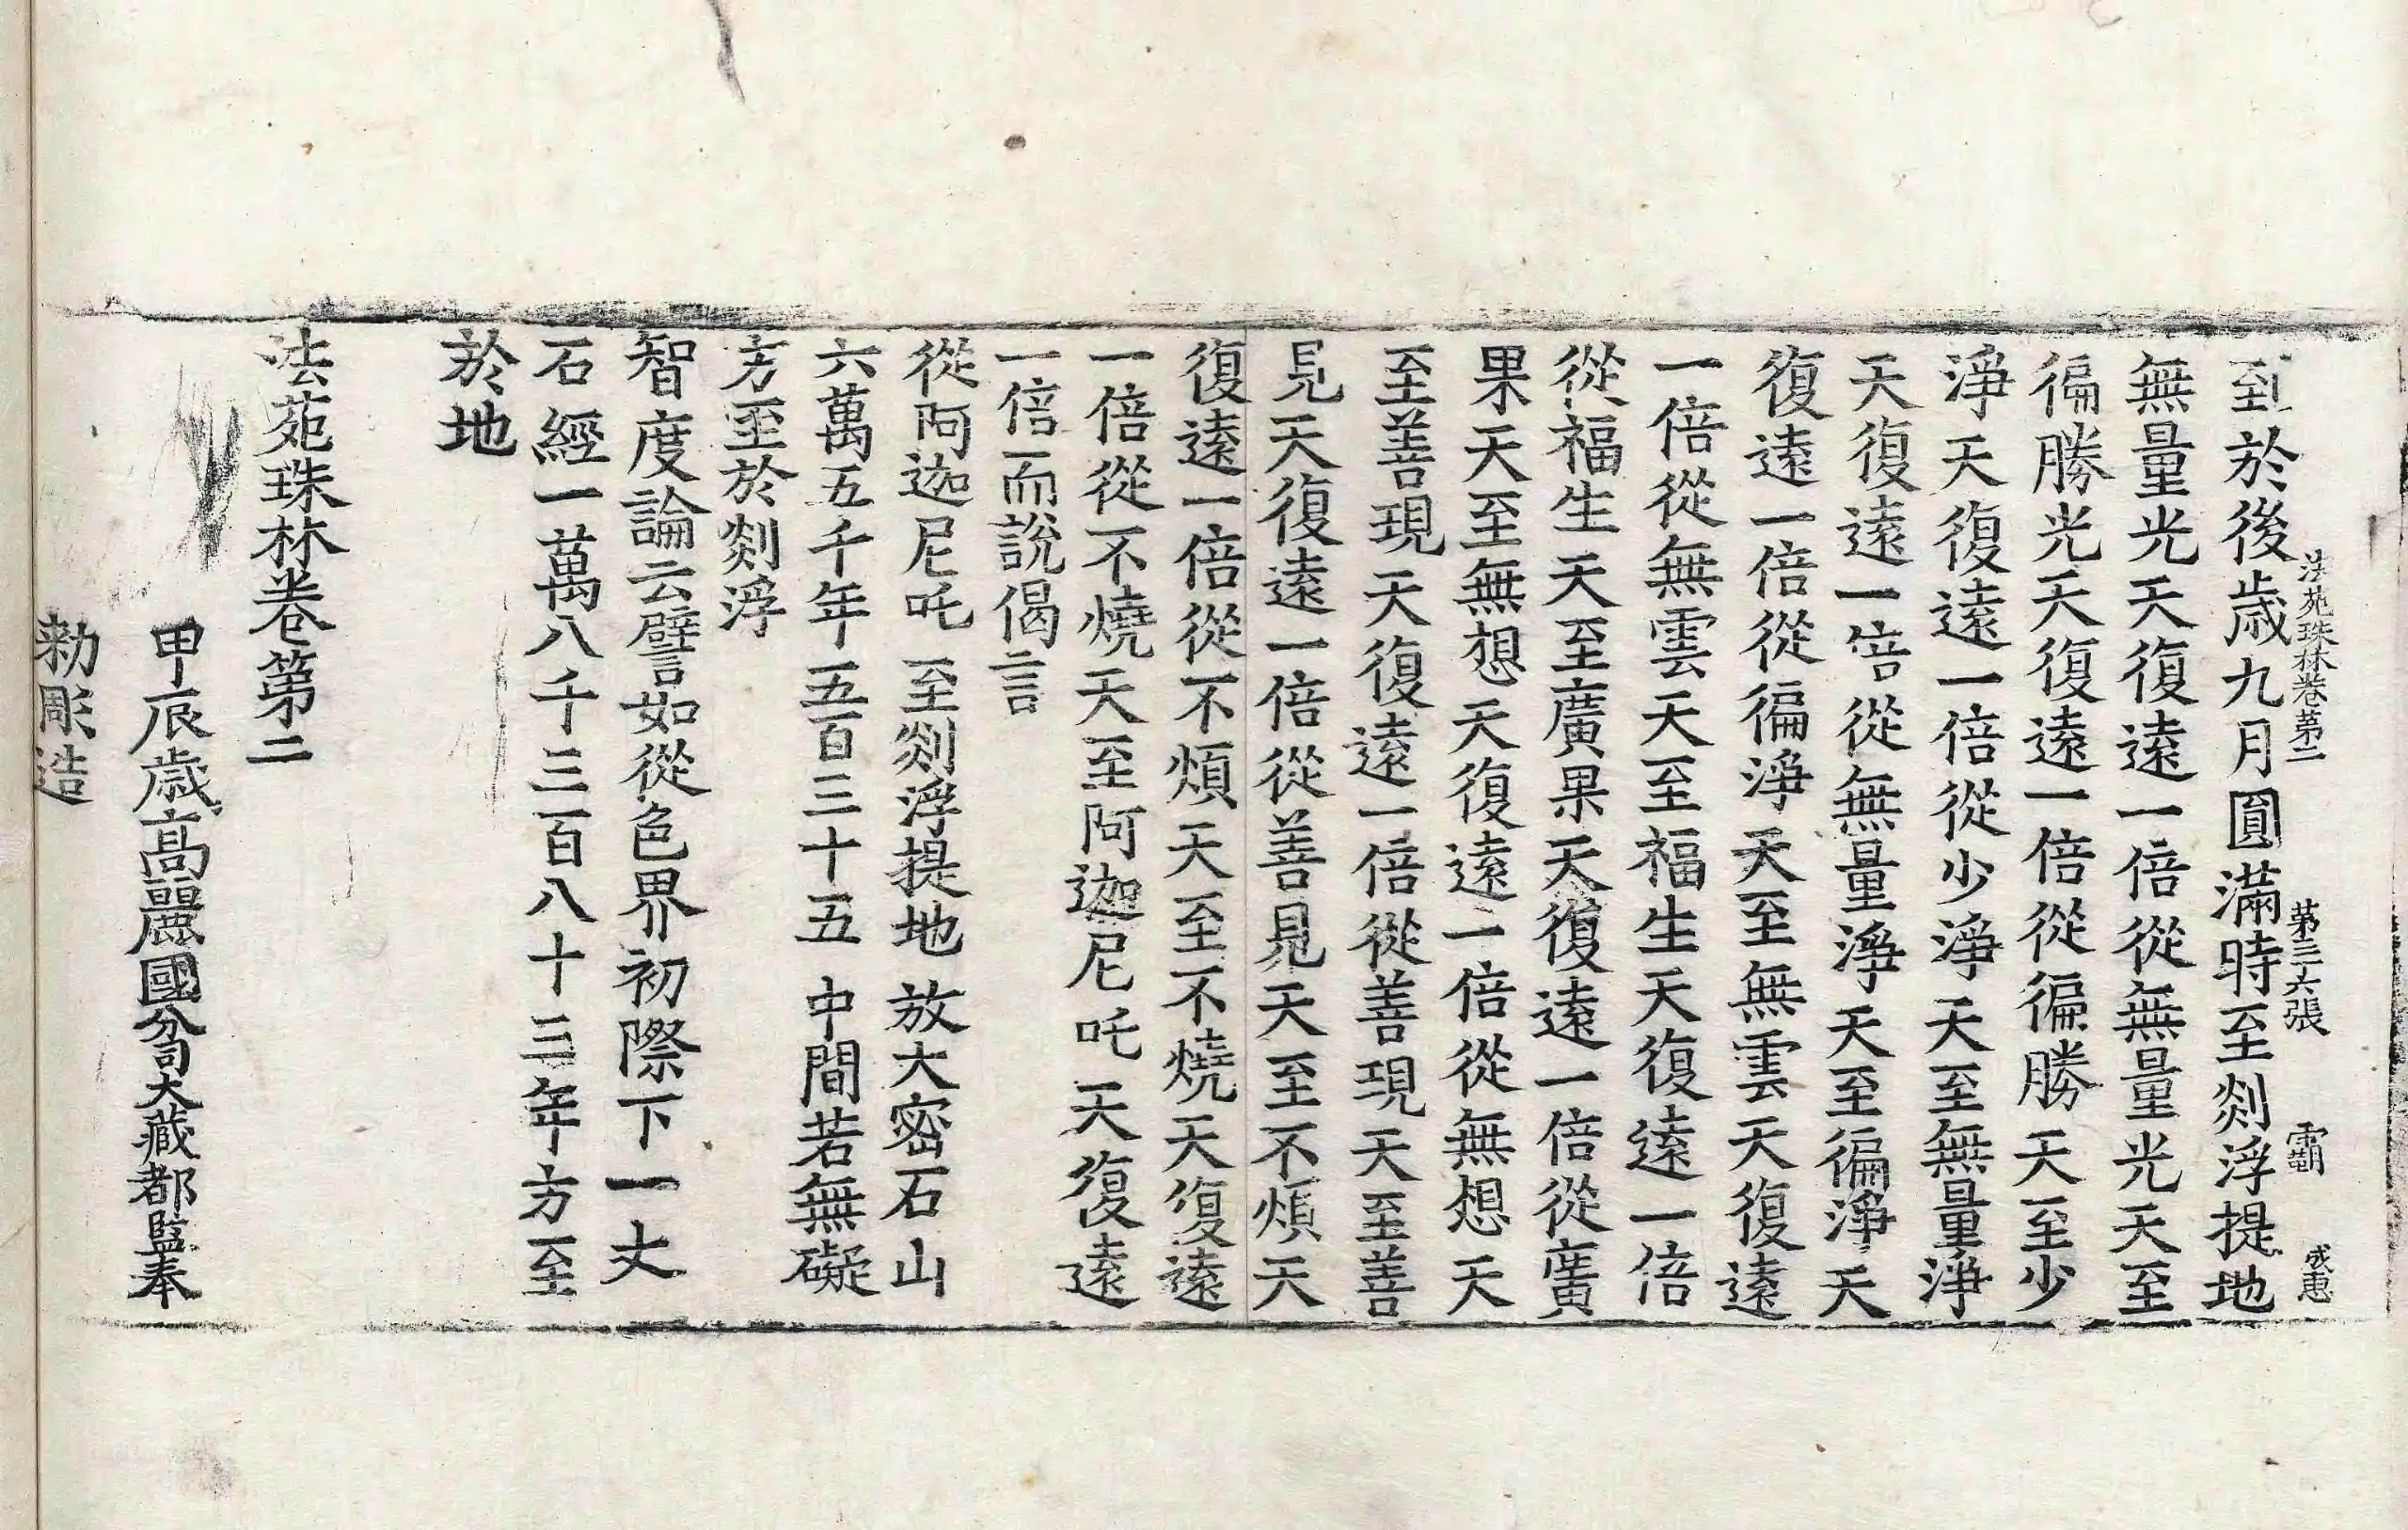 法苑珠林卷第二 第三六張 霸 成惠
到於後歲九月圓滿時至剡浮提地
無量光天復遠一倍從無量光天至
徧勝光天復遠一倍從徧勝天至少
淨天復遠一倍從少淨天至無量淨
天復遠一倍從無量淨天至徧淨天
復遠一倍從徧淨天至無雲天復遠
一倍從無雲天至福生天復遠一倍
從福生天至廣果天復遠一倍從廣
果天至無想天復遠一倍從無想天
至善現天復遠一倍從善現天至善
見天復遠一倍從善見天至不煩天
復遠一倍從不煩天至不燒天復遠
一倍從不燒天至阿迦尼吒天復遠
一倍而說偈言
從阿迦尼吒 至剡浮提地 放大密石山
六萬五千年 五百三十五 中間若無礙
方至於剡浮
智度論云譬如從色界初際下一丈
石經一萬八千三百八十三年方至
於地
法苑珠林卷第二
甲辰歲高麗國分司大藏都監奉
勅彫造